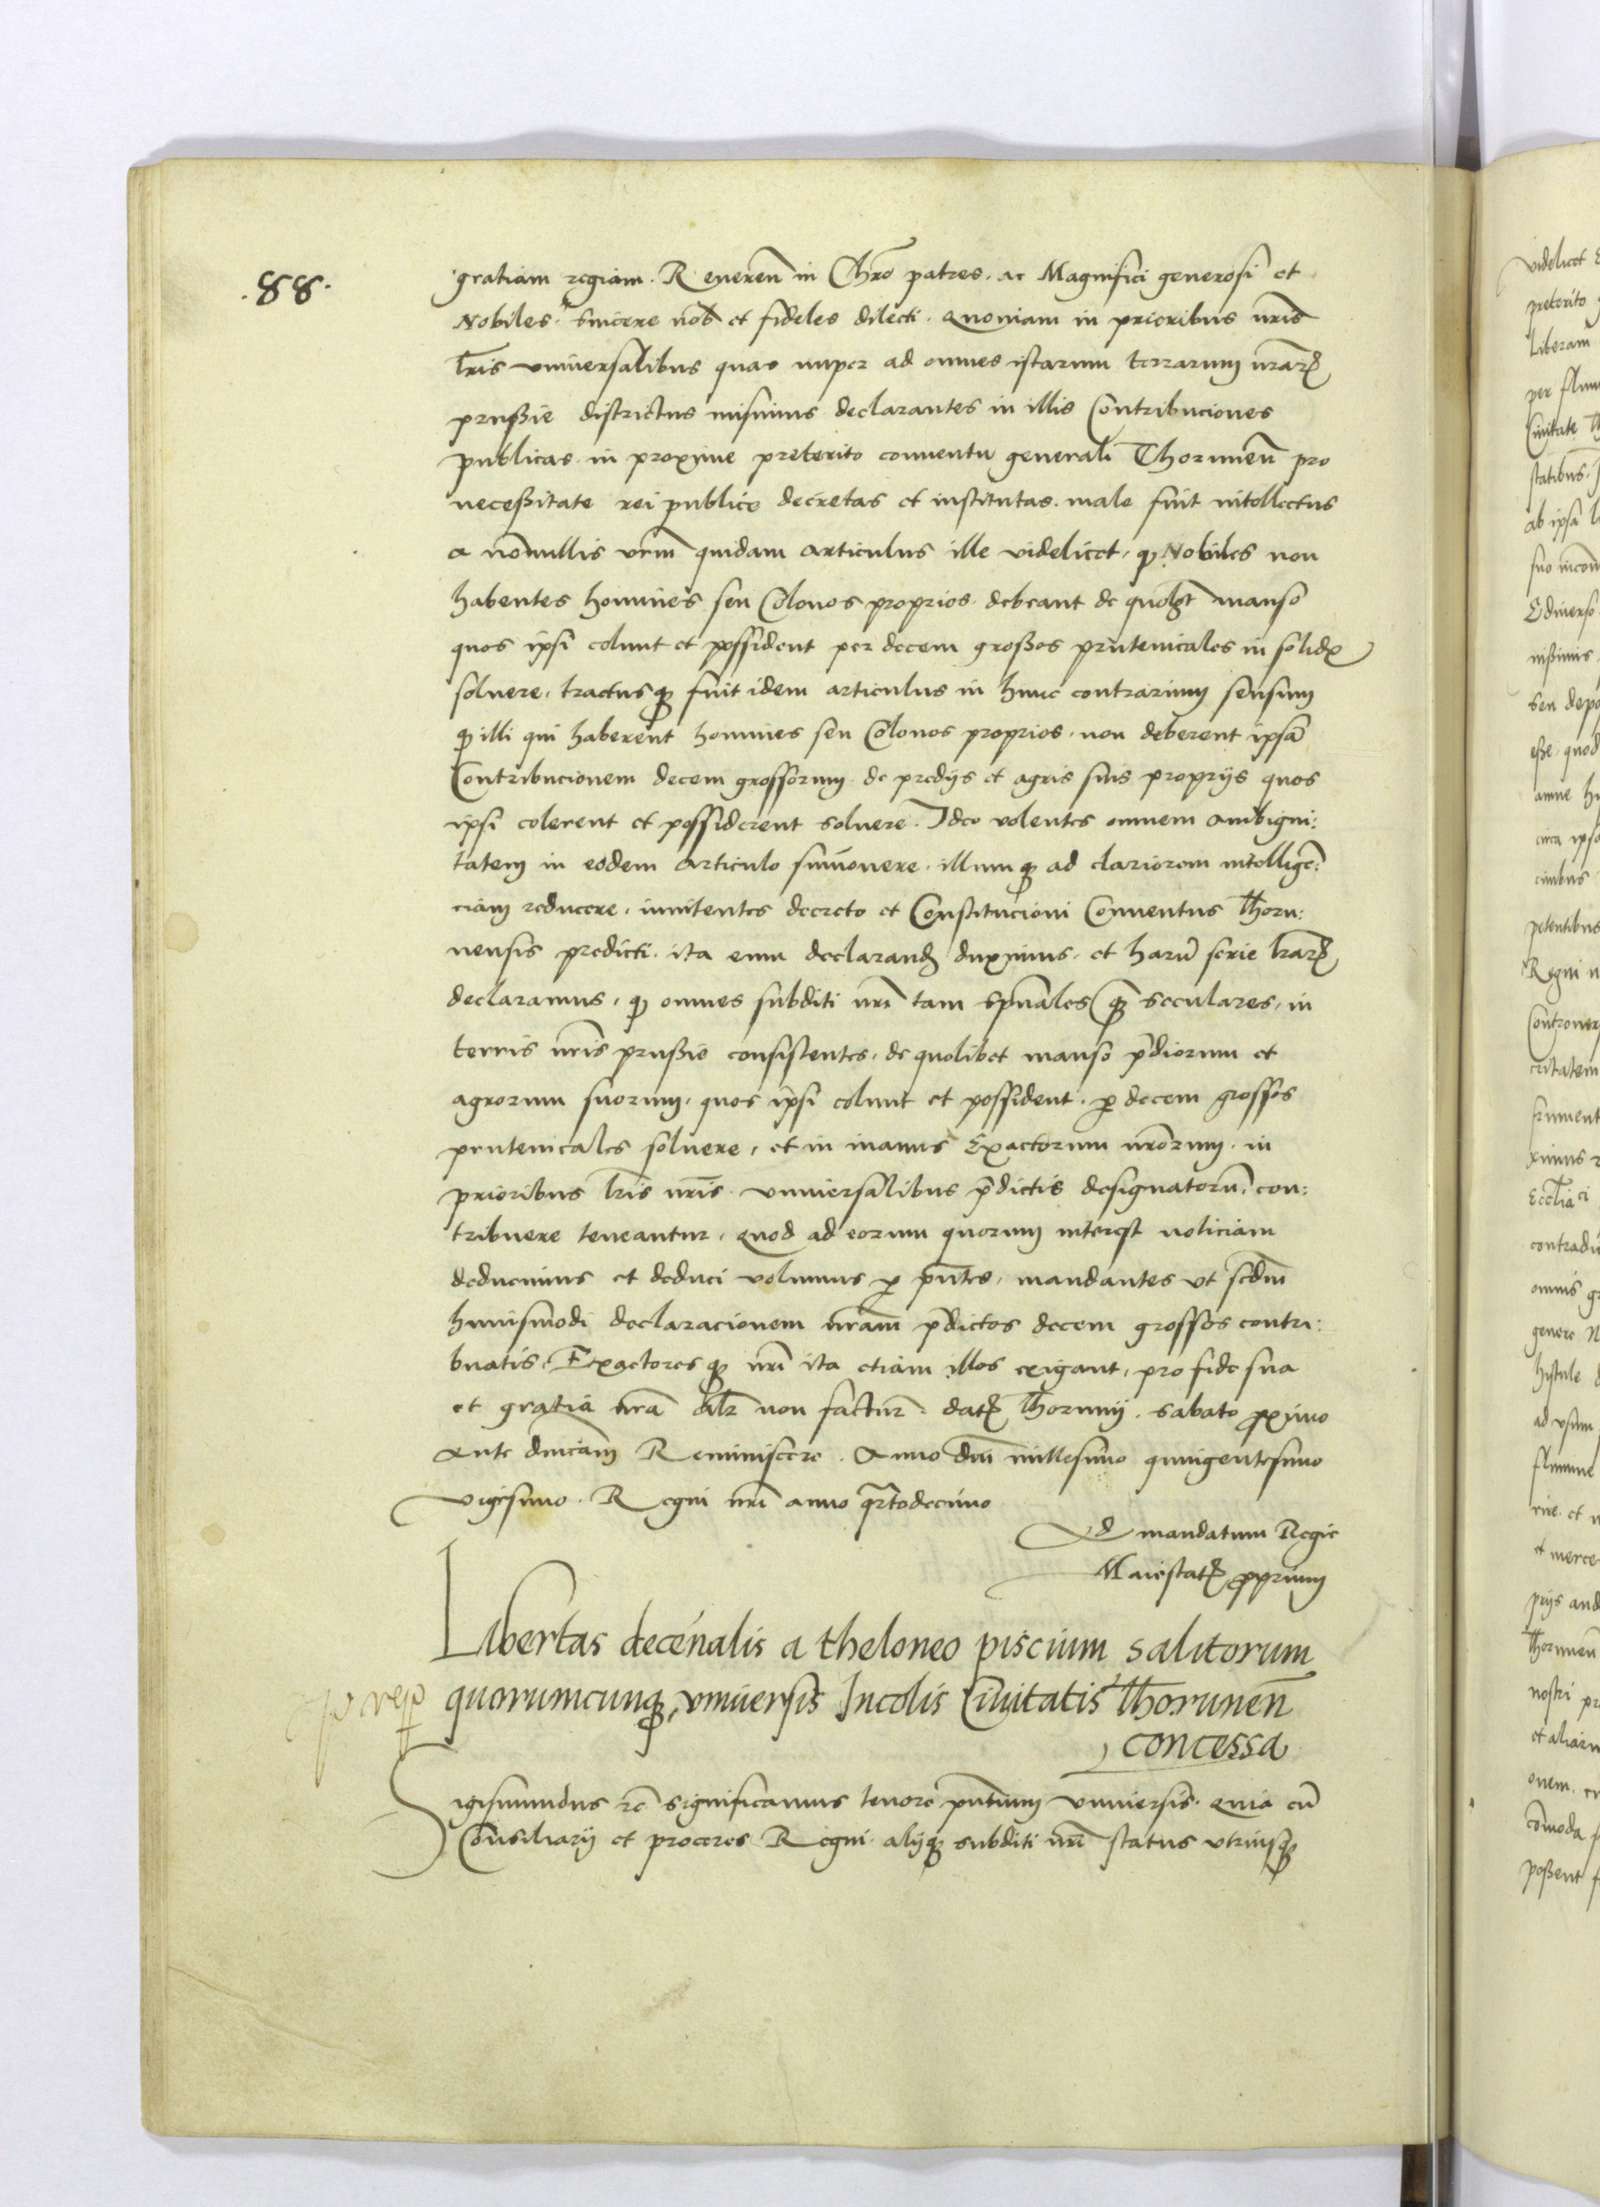 .88.
gratiam regiam. Reueren̄ in Chr̄o patres. ac Magnifici generosi et
Nobiles. sincere nob̄ et fideles dilecti. Quoniam in prioribus nr̄is
lr̄is vniuersalibus quas nuper ad omnes istarum terrarum nr̄arꝝ
prussie districtus misimus declarantes in illis Contribuciones
publicas in proxime preterito conuentu generali Thorunien̄ pro
necessitate rei publice decretas et institutas. male fuit intellectus
a nōnullis vr̄m quidam articulus ille videlicet, ꝙ Nobiles non
habentes homines seu Colonos proprios debeant de quolꝫt manso
quos ipsi colunt et possident per decem grossos prutenicales in solidꝫ
soluere, tractusqꝫ fuit idem articulus in hunc contrarium sensum
ꝙ illi qui haberent homines seu Colonos proprios. non deberent ipsā
Contribucionem decem grossorum de predijs et agris suis proprijs quos
ipsi colerent et possiderent soluere. Ideo volentes omnem ambigui:
tatem in eodem articulo summouere. illumqꝫ ad clariorem intelligē:
ciam reducere, innitentes decreto et Constitucioni Conuentus Thoru:
nensis predicti. ita eum declarand̄ duximus. et harū serie lr̄arꝝ
declaramus, ꝙ omnes subditi nr̄i tam sp̄uales qꝫ seculares, in
terris nr̄is prussie consistentes, de quolibet manso p̄diorum et
agrorum suorum, quos ipsi colunt et possident. ꝑ decem grossos
prutenicales soluere, et in manus Exactorum nr̄orum. in
prioribus lr̄is nr̄is vniuersalibus p̄dictis designatorū, con:
tribuere teneantur, Quod ad eorum quorum interest noticiam
deducimus et deduci volumus ꝑ pn̄tes, mandantes vt scd̄m
huiusmodi declaracionem nr̄am p̄dictos decem grossos contri:
buatis, Exactoresqꝫ nr̄i ita etiam illos exigant, pro fide sua
et gratia nr̄a alr̄ non factur̄. datꝫ Thorunij. sabato ꝓximo
ante dn̄icam Reminiscere. Anno dn̄i millesimo quingentesimo
vigesimo. Regni nr̄i anno qr̄todecimo
Ad mandatum Regie
Maiestatꝫ ꝓprium
Libertas decēnalis a theloneo piscium salitorum
quorumcunqꝫ, vniuersis Incolis Ciuitatis Thorunen̄
concessa
Sigismundus ꝛc̄ significamus tenore pn̄tium vniuersis. Quia cū
Consiliarij et proceres Regni. alijqꝫ subditi nr̄i status vtriusqꝫ